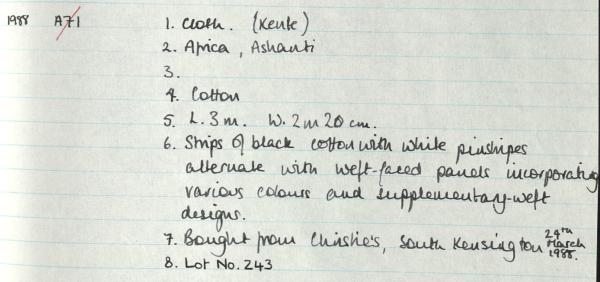 1988 A71 1. Cloth. (Kente)
2. Africa, Ashanti
3.
4. Cotton
5. L. 3 m. W. 2 m 20 cm.
6. Strips of black cotton with white pinstripes
alternate with weft-faced panels incorporating
various colours and supplementary-weft
designs.
7. Bought from Christie's, South Kensington 24th March 1988.
8. Lot No. 243